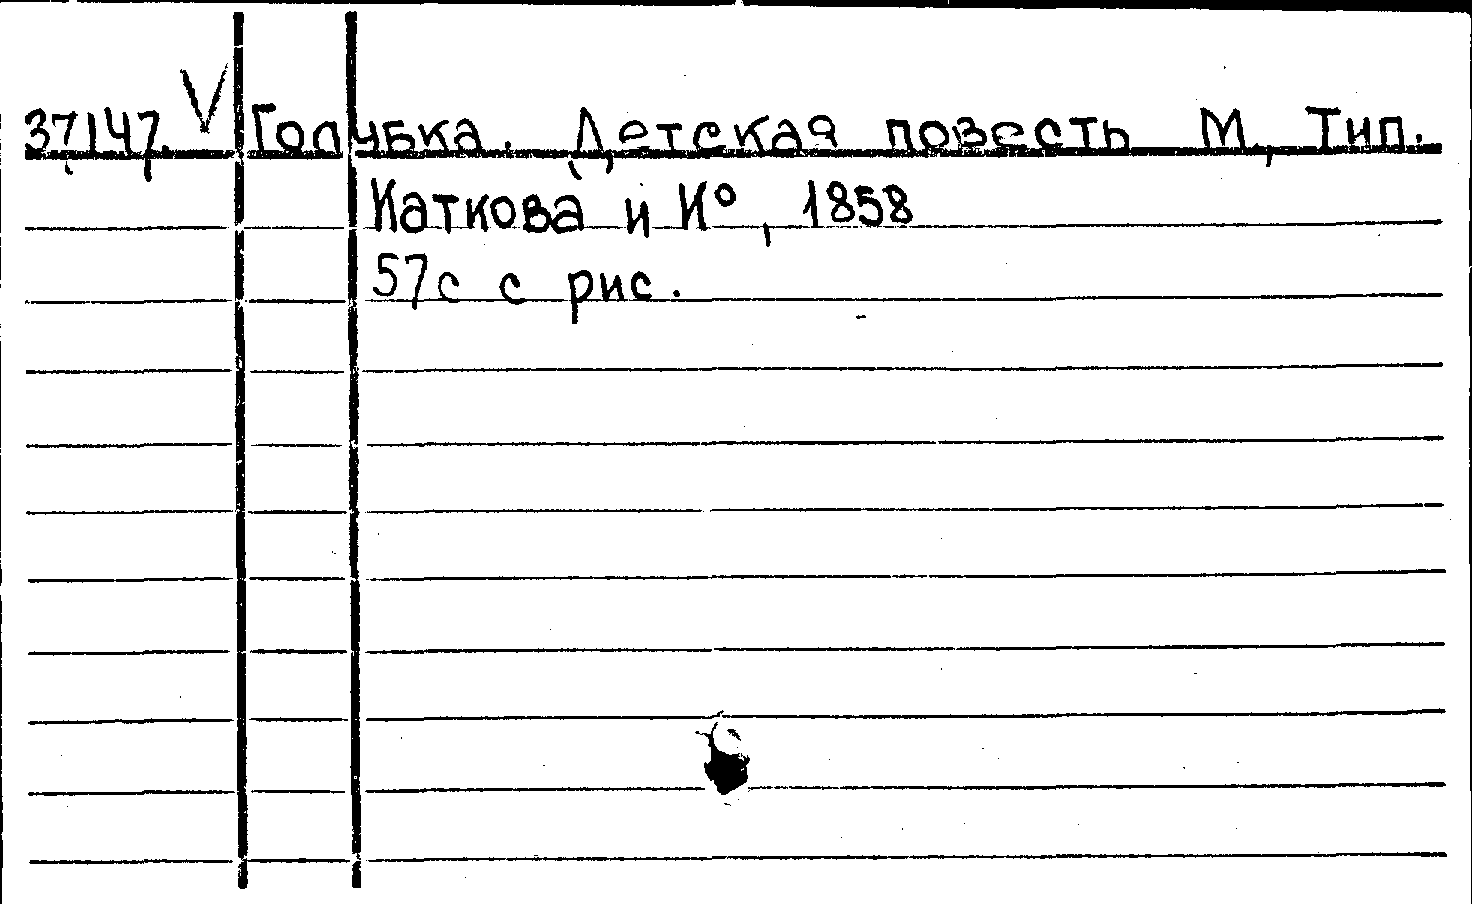 37147. V Голубка. Детская повесть М., Тип.
Каткова и К°, 1858
57с с рис.